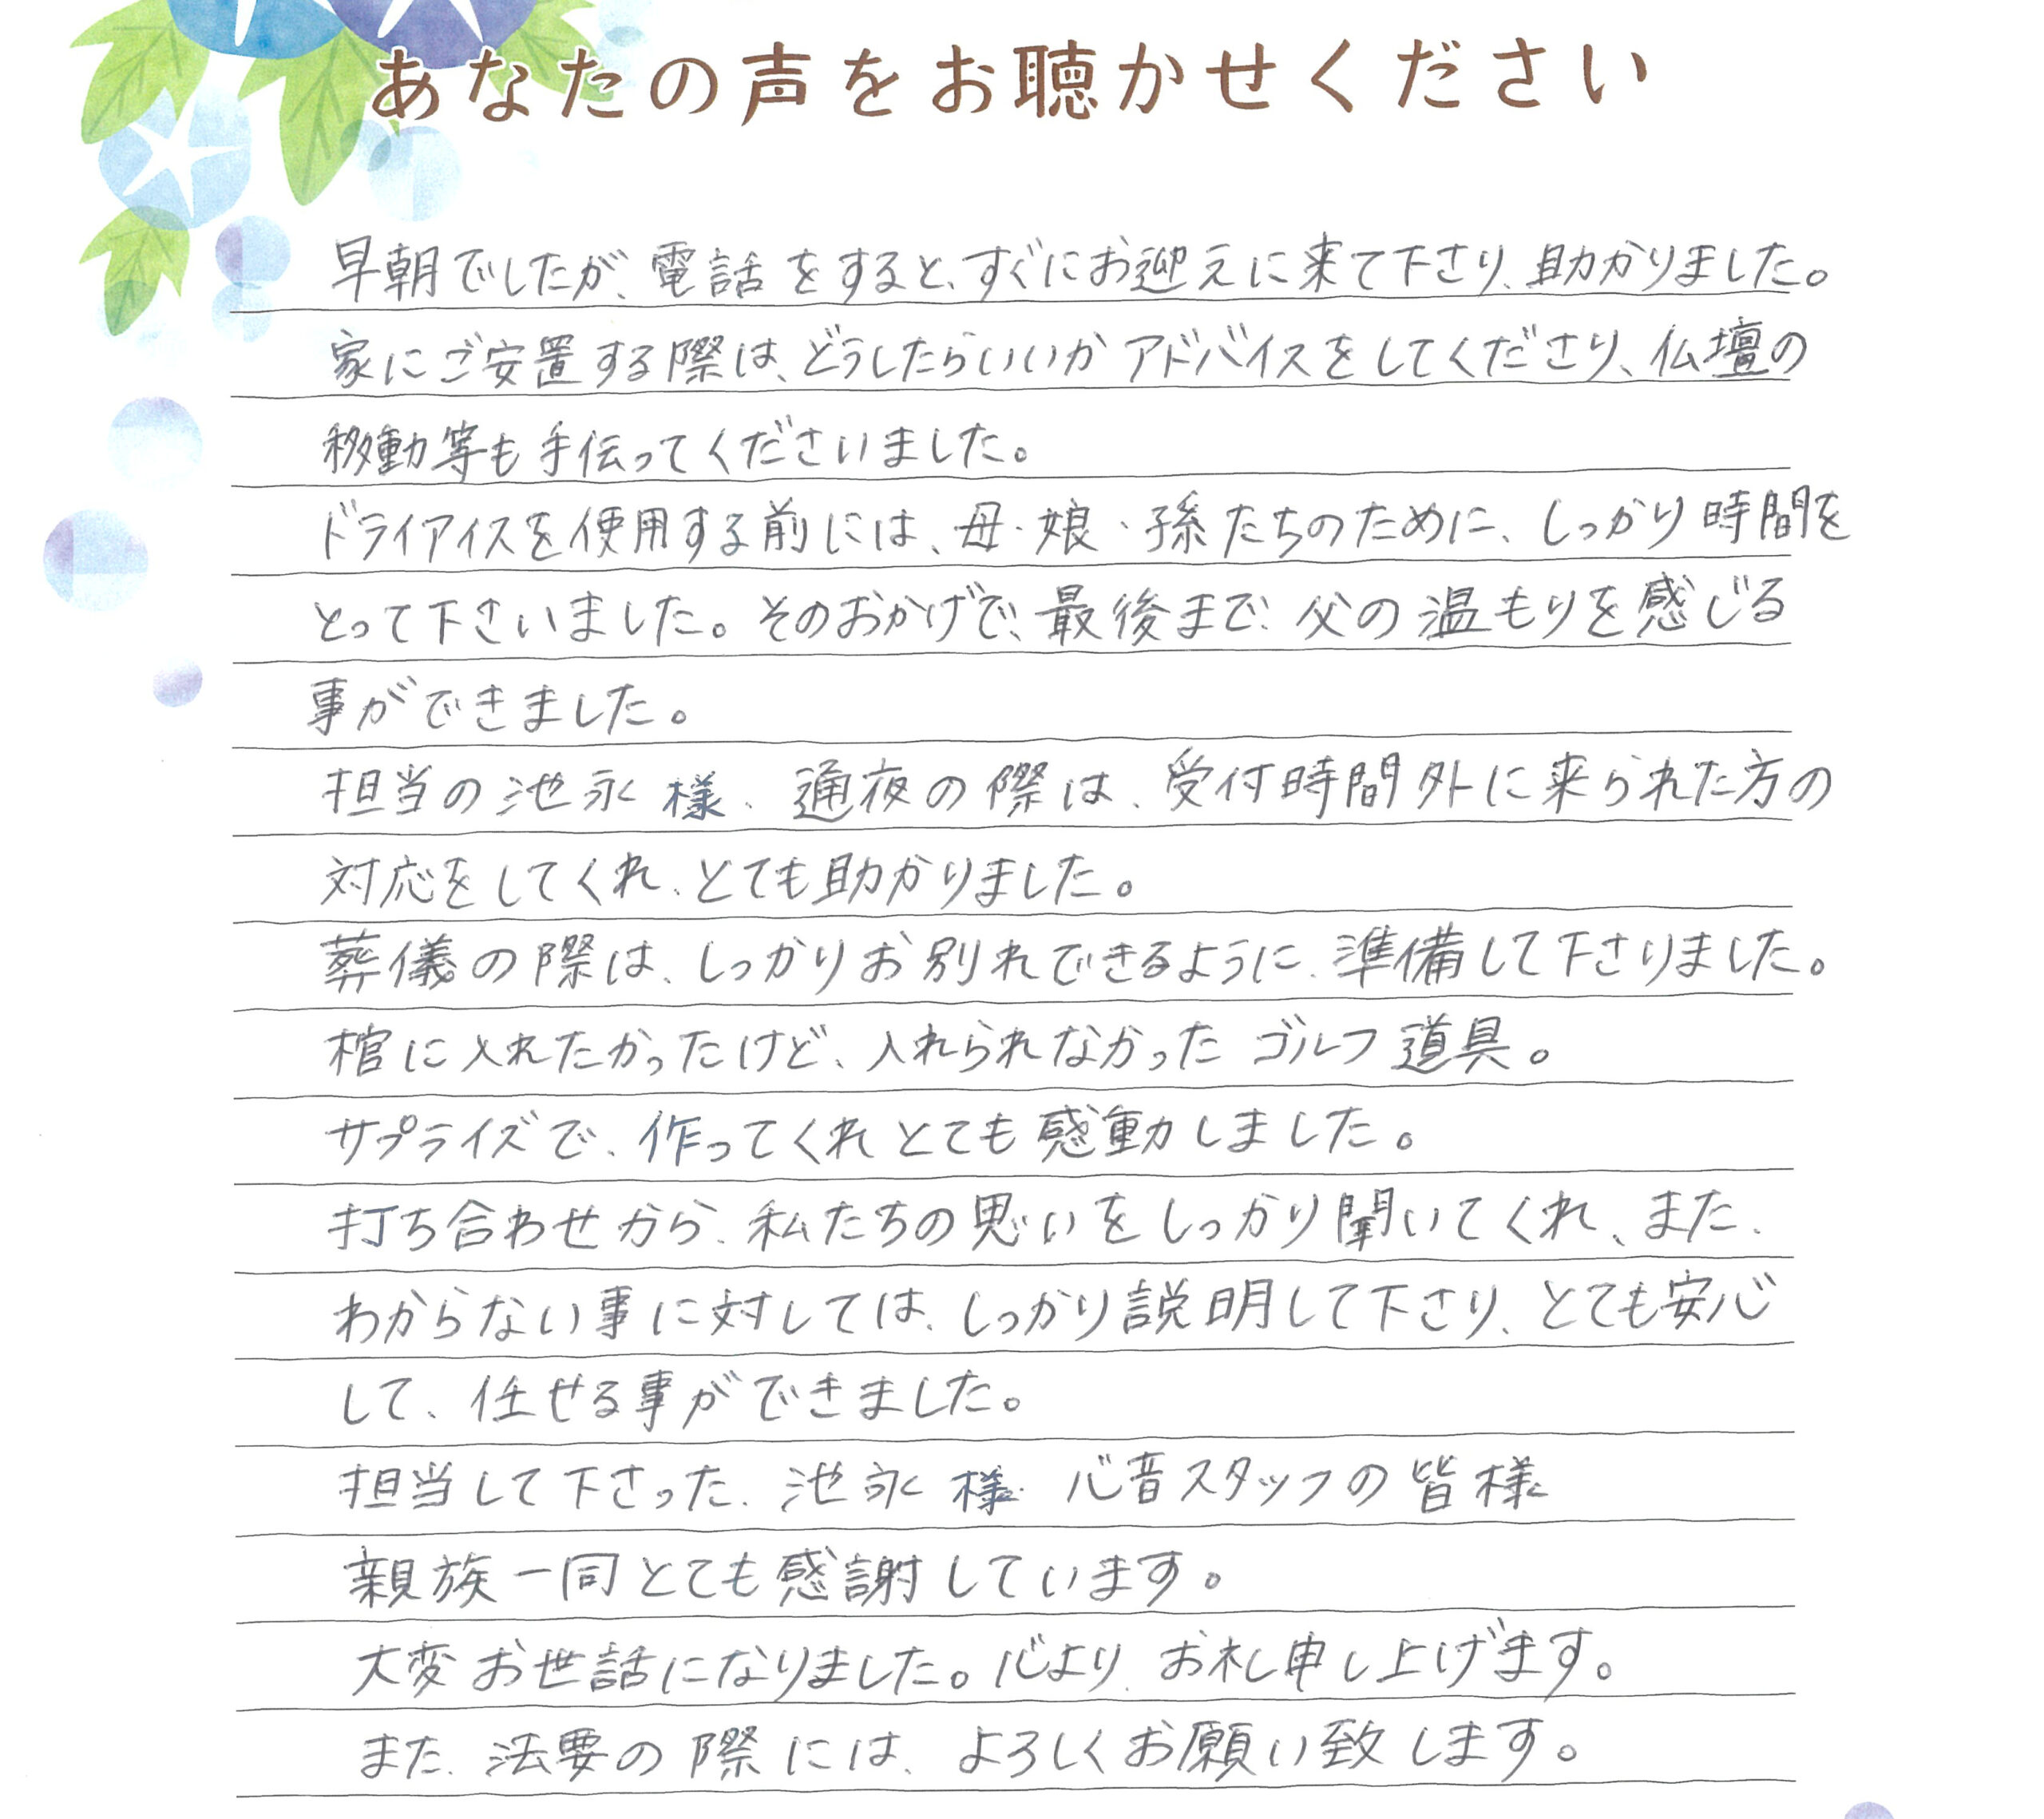 あなたの声をお聴かせください
早朝でしたが、電話をすると、すぐにお迎えに来て下さり、助かりました。
家にご安置する際は、どうしたらいいかアドバイスをしてくださり、仏壇の
移動等も手伝ってくださいました。
ドライアイスを使用する前には、母・娘・孫たちのために、しっかり時間を
とって下さいました。そのおかげで、最後まで、父の温もりを感じる
事ができました。
担当の池永様、通夜の際は、受付時間外に来られた方の
対応をしてくれ、とても助かりました。
葬儀の際は、しっかりお別れできるように、準備して下さりました。
棺に入れたかったけど、入れられなかったゴルフ道具。
サプライズで、作ってくれとても感動しました。
打ち合わせから、私たちの思いをしっかり聞いてくれ、また、
わからない事に対しては、しっかり説明して下さり、とても安心
して、任せる事ができました。
担当して下さった、池永様 心音スタッフの皆様
親族一同とても感謝しています。
大変お世話になりました。心より、お礼申し上げます。
また、法要の際には、よろしくお願い致します。